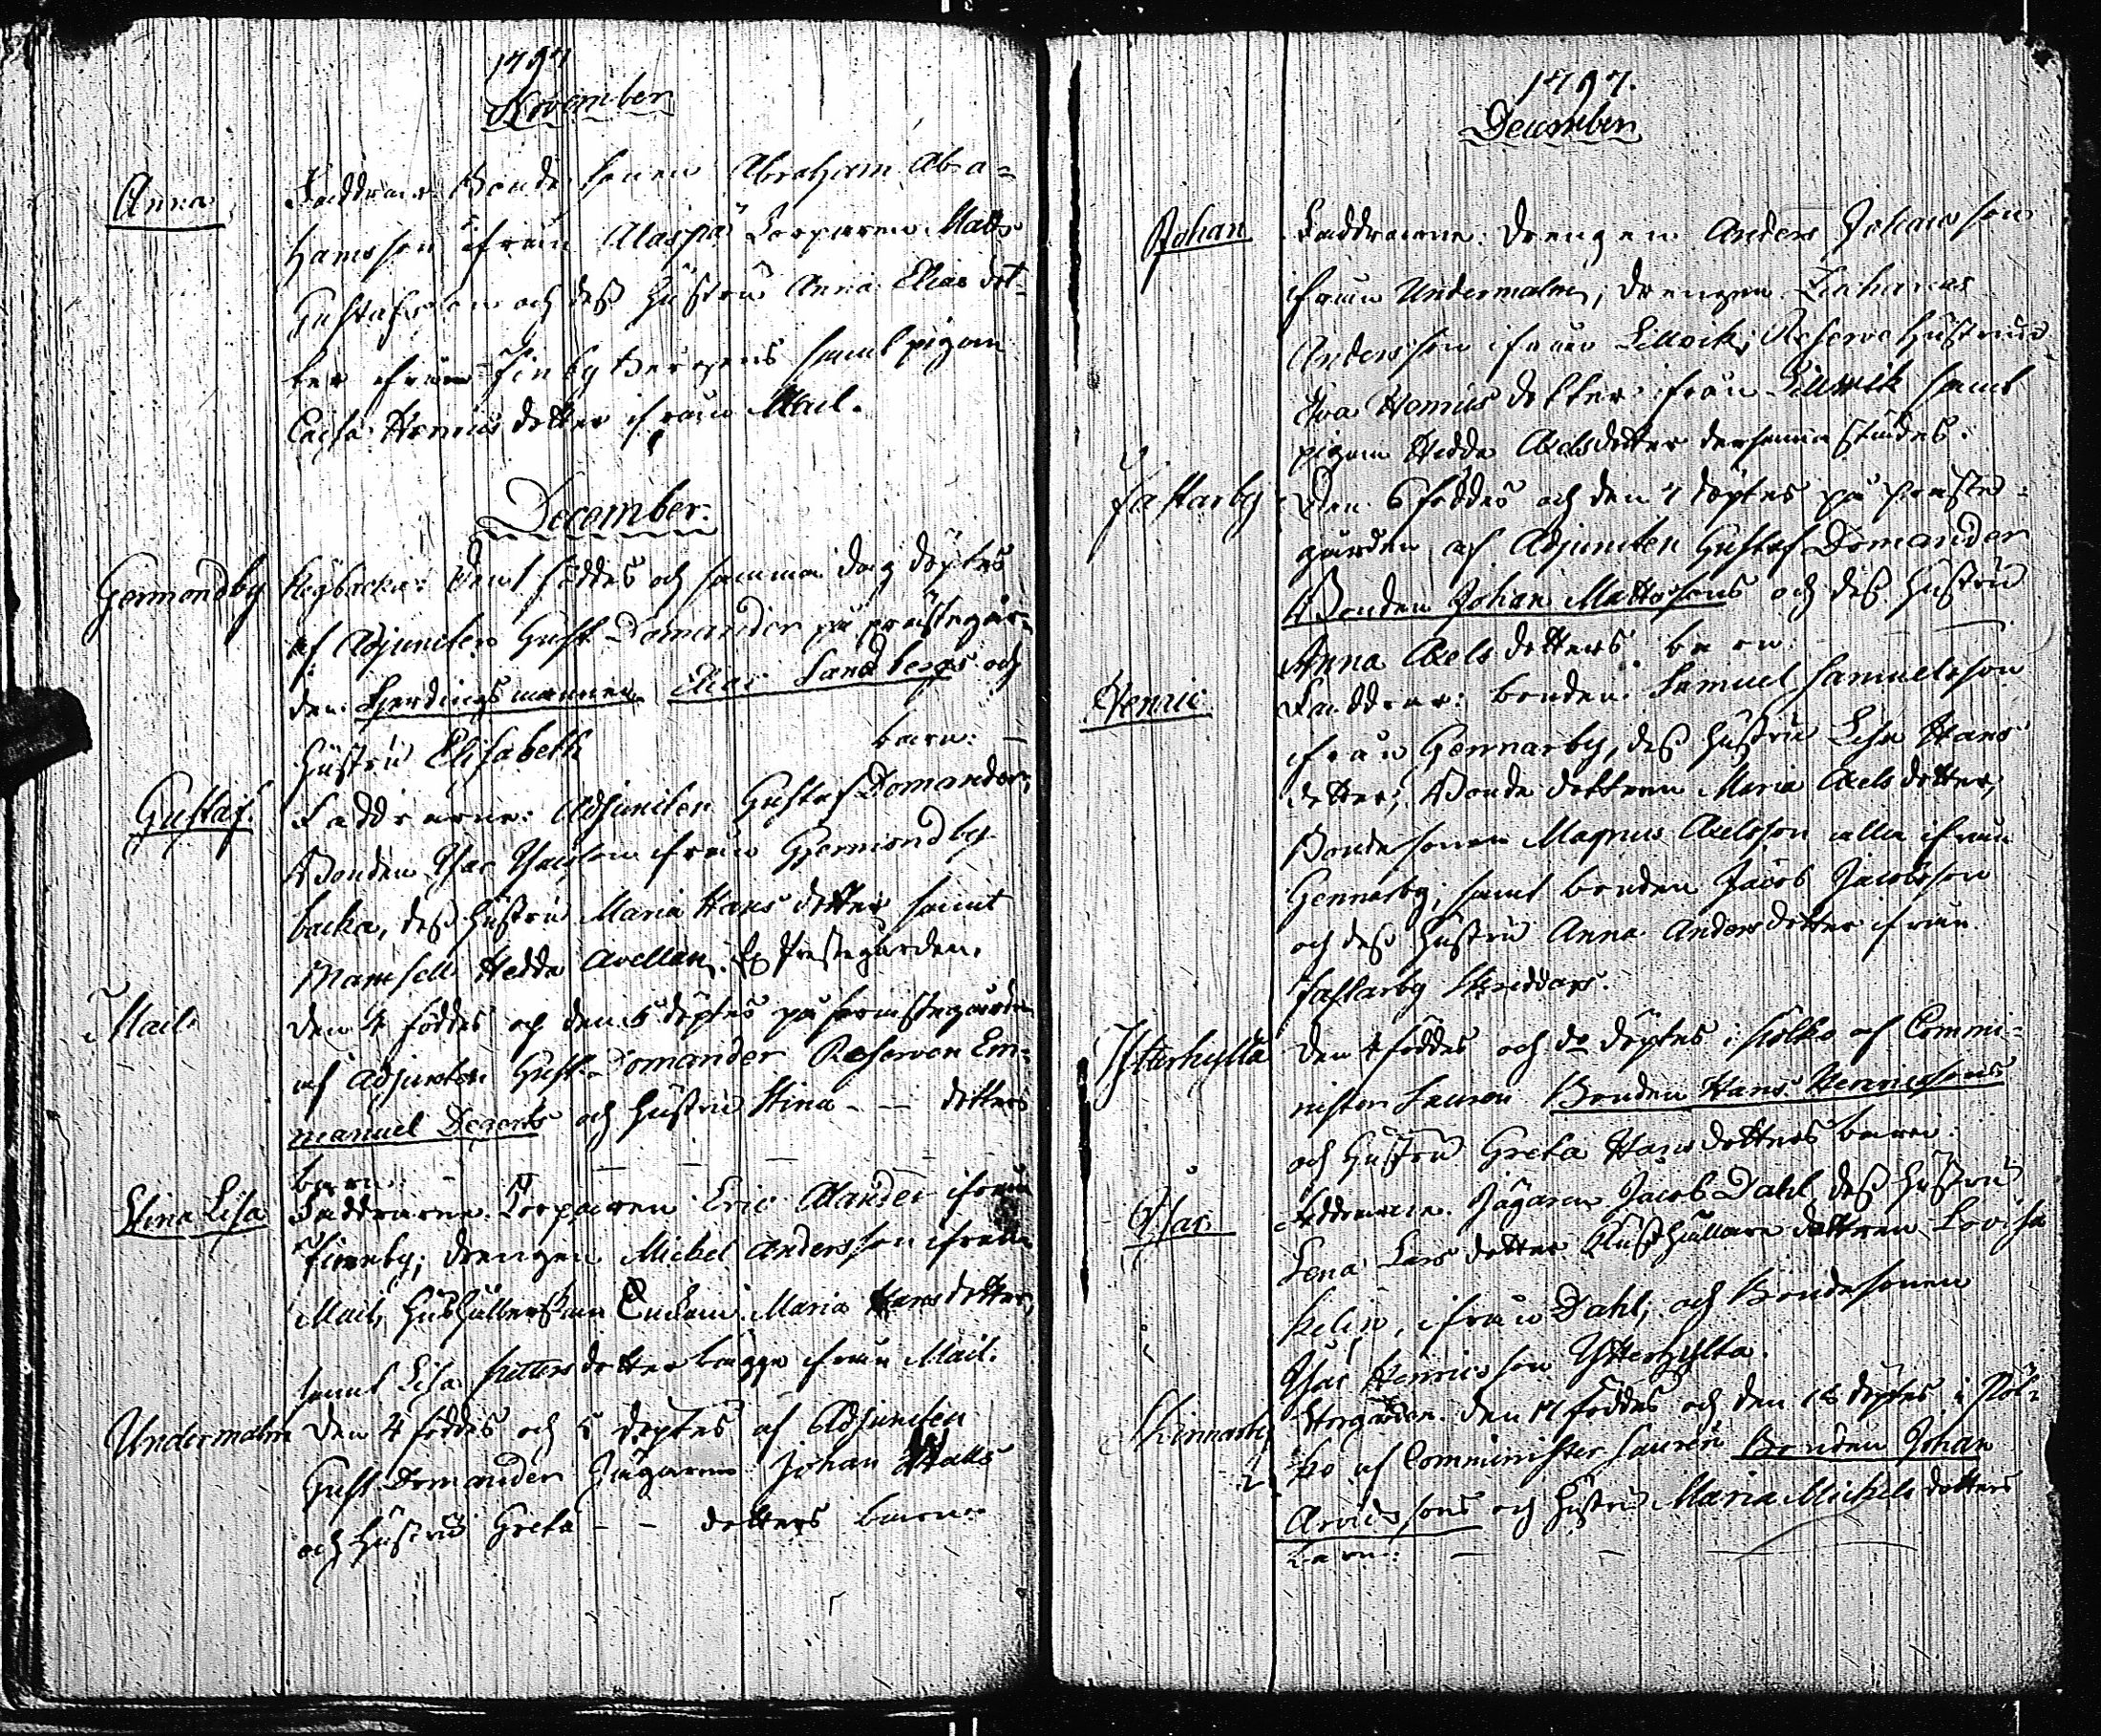 1797
November
Anna Faddrar: Bonde sonen Abraham Abra-
hamsson ifrån Alaspä Torparen Matts
Gustafsson och dess Hustru Anna Elias dot-
ter ifrån Finby Bergens samt pigan
Caisa Henricsdotter ifrån Mail.
December
Germondby Kejbacka: Den 1 föddes och samma dag döptes
af Adjuncten Gust Domander på prästegår-
den Fjerdingsmannen Elias Sandbergs och
Hustru Elisabeth barn: —
Gustaf. Faddrarne: Adjuncten Gustaf Domander,
Bonden Isac Isacsson ifrån Germondby
backa, dess Hustru Maria Hans dotter samt
Mamsell Hedda Avellan. fr Prestegården.
Mail den 4 föddes och den 5 döptes på prästegården
af Adjuncten Gust. Domander Reserven Em-
manuel Degerts och Hustru Stina - — dotters
barn: — — — —
Stina Lisa Faddrarne. Torparen Eric Alander ifrån
Finnby; drengen Michel Andersson ifrån
Mail, Hushållerskan Enkan Maria Hansdotter,
samt Lisa Pettersdotter bägge ifrån Mail.
Undermalm Den 4 föddes och 5 döptes af Adjuncten
Gust Domander Jägaren Johan Malls
och Hustru Greta - - dotters barn
1797.
December
Johan Faddrarne: Drengen Anders Johansson
ifrån Undermalm, drengen Zacharias
Andersson ifrån Lillvik; Reserve Hustrun
Eva Henricsdotter ifrån Lillvik samt
pigan Hedda Axelsdotter dersammastädes.
Jastarby Den 6 föddes och den 7 döptes på prästa-
gården af Adjuncten Gustaf Domander
Bonden Johan Mattssons och dess Hustru
Anna Axels dotters barn: —
Henric Faddrar: bonden Samuel Samuelsson
ifrån Gennarby, dess Hustru Lisa Hans
dotter, Bonde dottren Maria Axelsdotter,
Bonde sonen Magnus Axelsson alla ifrån
Gennarby; samt bonden Jacob Jacobsson
och dess Hustru Anna Anders dotter ifrån
Jastarby Skreddars.
Ytterhylta Den 4 föddes och do döptes i Pölkö af Commi-
nister Lauren Bonden Hans Henricssons
och Hustru Greta Hansdotters barn.
Isac Faddrarne. Jägaren Jacob Dahl, dess Hustru
Lena Lars dotter Rusthållare dottren Lovisa
Helin, ifrån Dahl, och Bondesonen
Isac Henricsson Ytterhylta.
Skinnarby Storgården. Den 17 föddes och den 18 döptes i Pöl-
kö af Comminister Lauren Bonden Johan
Arvidssons och Hustru Maria Michels dotters
barn: — —